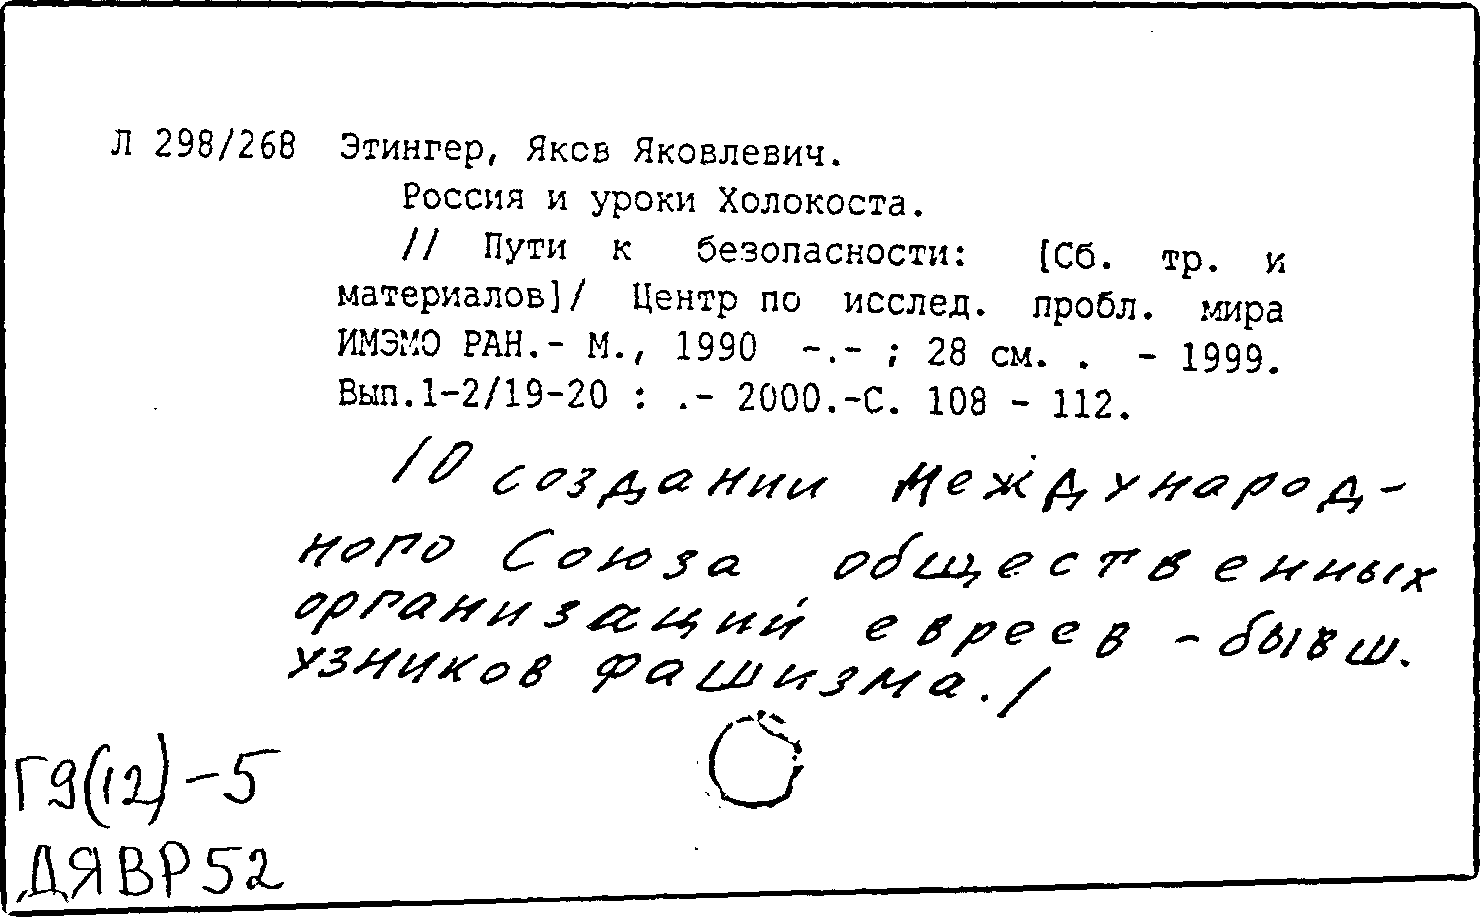 Л 298/268 Этингер, Яков Яковлевич.
Россия и уроки Холокоста.
// Пути к безопасности: [Сб. тр. и
материалов]/ Центр по исслед. пробл. мира
ИМЭМО РАН.- М., 1990 -.- ; 28 см. . - 1999.
Вып.1-2/19-20 : .- 2000.-С. 108 - 112.
/О создании Международ-
ного Союза общественных
организаций евреев - бывш.
узников фашизма./
Г9(12)-5
ДЯВР52